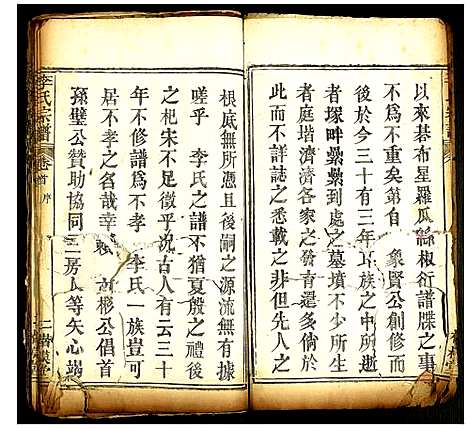 以來碁布星羅瓜緜椒衍譜牒之事
不為不重矣第自 象賢公創修而
後於今三十有三年 族之中所逝
者塚畔纍纍到處之墓墳不少所生
者庭堦濟濟各家之發育還多倘於
此而不詳誌之悉載之非但先人之
根底無所憑且後嗣之源流無有據
嗟乎 李氏之譜不猶夏殷之禮後
之杞宋不足徵乎況古人有云三十
年不修譜為不孝 李氏一族豈可
居不孝之名哉幸 彬公倡首
孫璧公贊助協同三房人等矢心端
李氏宗譜 卷首 序